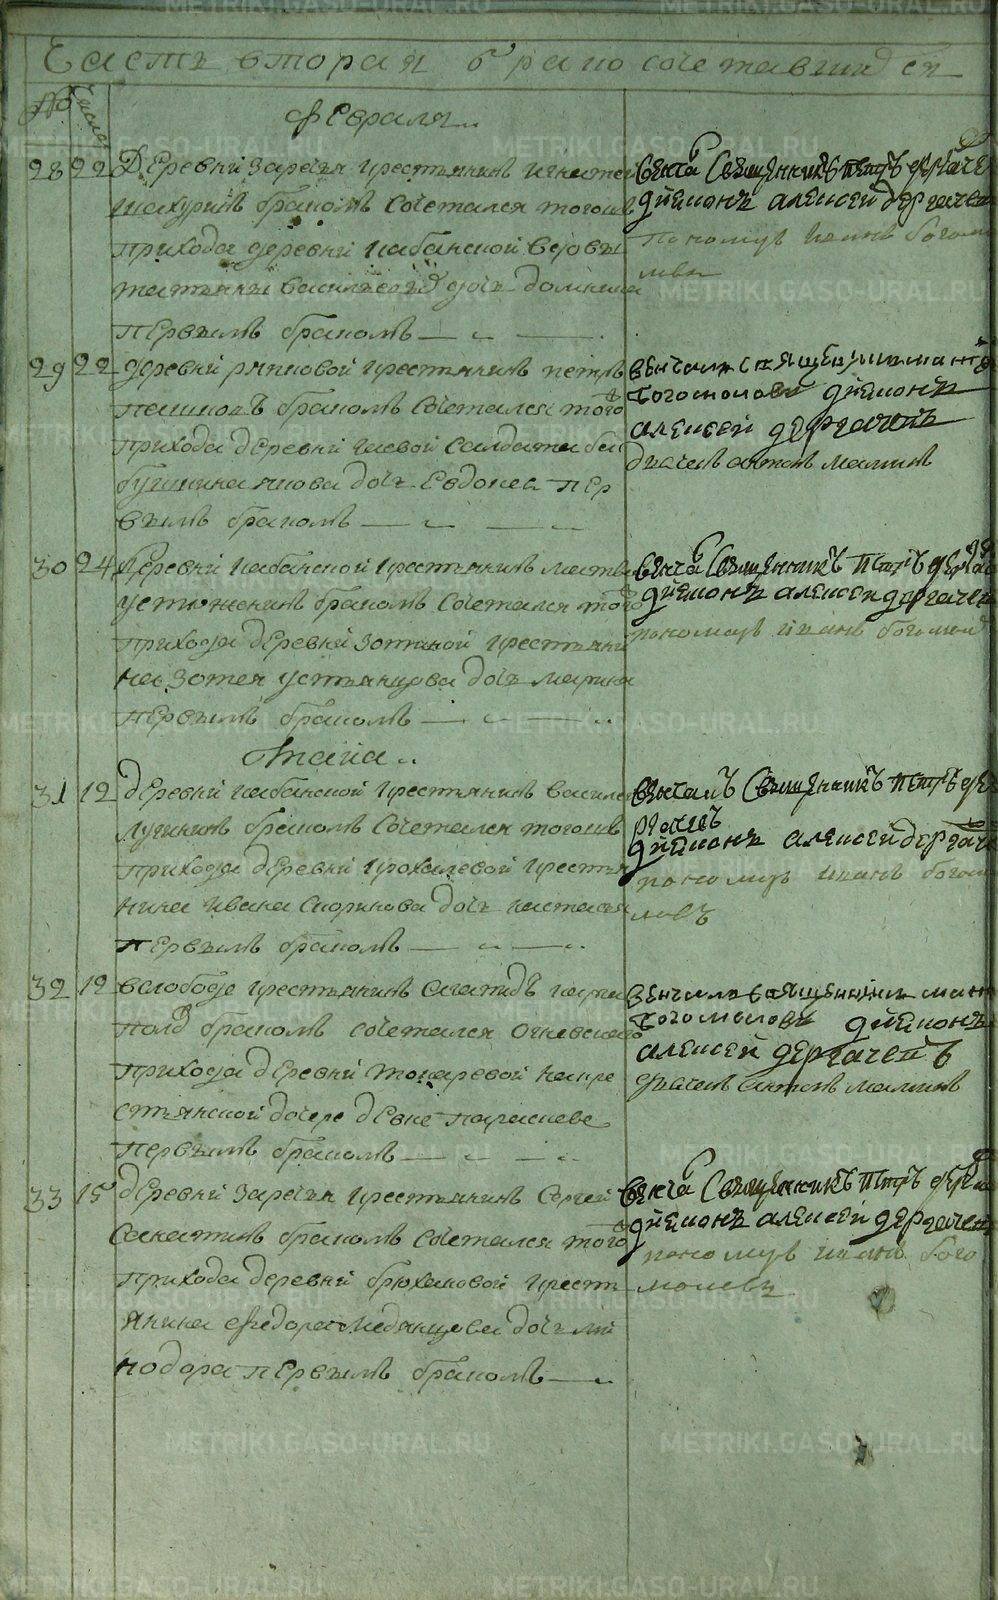 Часть вторая о бракосочетавшихся
№ число
Февраля
28 22 Деревни заречья крестьянинъ игнатей
бракомъ сочетался тогожъ
прихода деревни кабанской вдовы
татьяны васильевой дочь домника
первымъ бракомъ
венча священникъ петръ дергаче
дьяконъ алексей дергачев
пономарь иванъ богом
ловъ
29 22 деревни крестьянинъ петръ
пешковъ бракомъ сочетался того
прихода деревни салдата ба
бушкина якова дочь евдокеа пер
вымъ бракомъ
венчали священникъ
богомоловъ дьяконъ
алексей дергачевъ
дьячекъ антонъ малинъ
30 24 деревни кабанской крестьянинъ
бракомъ сочетался того
прихода деревни зотиной крестьяни
на зотея устьянцова дочь марина
первымъ бракомъ
венча священникъ петръ дергач
дьяконъ алексей дергачев
пономарь иванъ богомол
маиа
31 12 деревни кабанской крестьянинъ василей
лугининъ бракомъ сочетался тогожъ
прихода деревни крохалевой крестья
нина ивана скорикова дочь настасья
первымъ бракомъ
венчалъ священникъ петръ де
ргачевъ
дьяконъ алексей дергаче
пономарь иванъ богом
ловъ
32 12 вслободе крестьянинъ
бракомъ сочетался огневского
прихода деревни токаревой
стьянской дочере девке параскеве
первымъ бракомъ
венчали священникъ
богомоловъ дьяконъ
алексей дергачевъ
дьячекъ антонъ малинъ
33 15 деревни заречья крестьянинъ сергей
бракомъ сочетался того
прихода деревни брюхановой кресть
янина федора медянцова дочь ми
нодора первымъ бракомъ
венча священникъ петръ дерга
дьяконъ алексей дергачев
пономарь иванъ бого
моловъ
METRIKI.GASO-URAL.RU